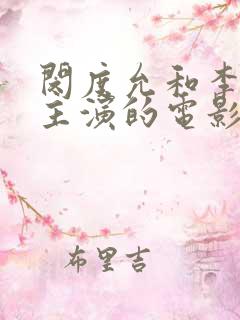 閔度允和李
主演的電影
布里吉